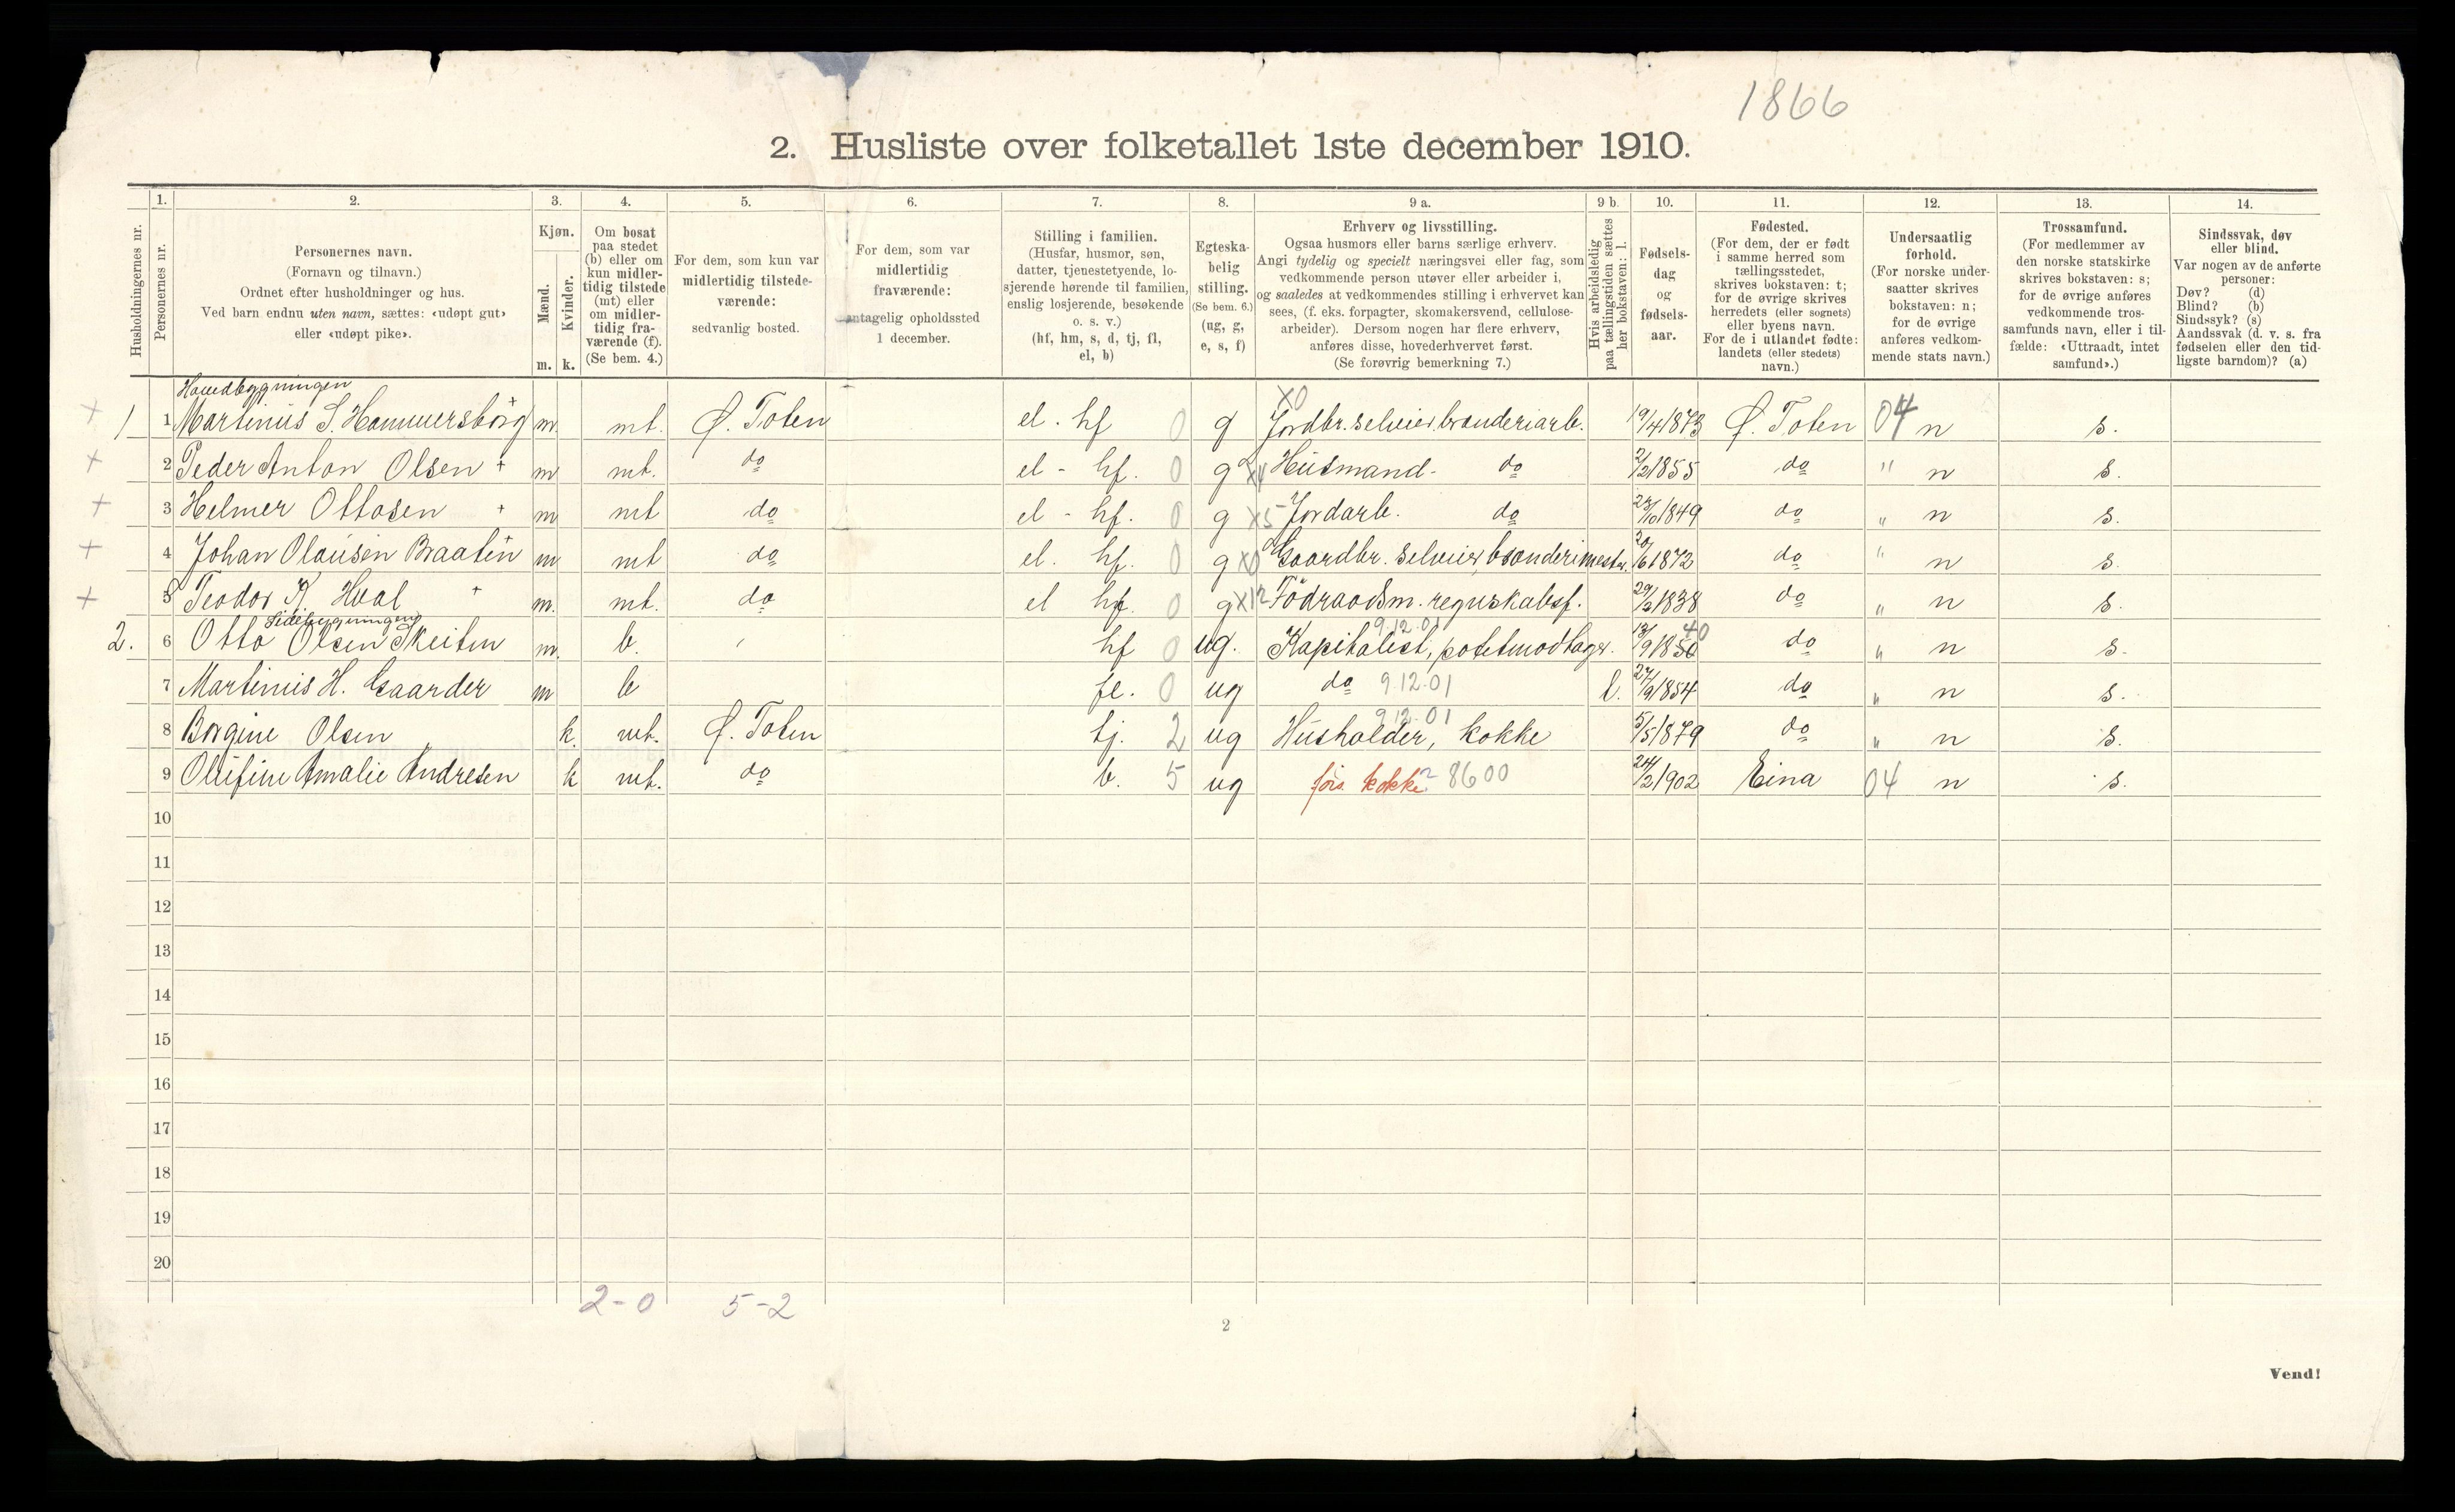 1866
2. Husliste over folketallet 1ste december 1910.
Husholdningernes nr.
1. Personernes nr.
2. Personernes navn.
(Fornavn og tilnavn.)
Ordnet efter husholdninger og hus.
Ved barn endnu uten navn, sættes: «udøpt gut»
eller «udøpt pike».
3. Kjøn.
Mænd. m.
Kvinder. k.
4. Om bosat
paa stedet
(b) eller om
kun midler-
tidig tilstede
(mt) eller
om midler-
tidig fra-
værende (f).
(Se bem. 4.)
5. For dem, som kun var
midlertidig tilstede-
værende:
sedvanlig bosted.
6. For dem, som var
midlertidig
fraværende:
antagelig opholdssted
1 december.
7. Stilling i familien.
(Husfar, husmor, søn,
datter, tjenestetyende, lo-
sjerende hørende til familien,
enslig losjerende, besøkende
o. s. v.)
(hf, hm, s, d, tj, fl,
el, b)
8. Egteska-
belig
stilling.
(Se bem. 6.)
(ug, g,
e, s, f)
9 a. Erhverv og livsstilling.
Ogsaa husmors eller barns særlige erhverv.
Angi tydelig og specielt næringsvei eller fag, som
vedkommende person utøver eller arbeider i,
og saaledes at vedkommendes stilling i erhvervet kan
sees, (f. eks. forpagter, skomakersvend, cellulose-
arbeider). Dersom nogen har flere erhverv,
anføres disse, hovederhvervet først.
(Se forøvrig bemerkning 7.)
9 b. Hvis arbeidsledig
paa tællingstiden sættes
her bokstaven: l.
10. Fødsels-
dag
og
fødsels-
aar.
11. Fødested.
(For dem, der er født
i samme herred som
tællingsstedet,
skrives bokstaven: t;
for de øvrige skrives
herredets (eller sognets)
eller byens navn.
For de i utlandet fødte:
landets (eller stedets)
navn.)
12. Undersaatlig
forhold.
(For norske under-
saatter skrives
bokstaven: n;
for de øvrige
anføres vedkom-
mende stats navn.)
13. Trossamfund.
(For medlemmer av
den norske statskirke
skrives bokstaven: s;
for de øvrige anføres
vedkommende tros-
samfunds navn, eller i til-
fælde: «Uttraadt, intet
samfund».)
14. Sindssvak, døv
eller blind.
Var nogen av de anførte
personer:
Døv? (d)
Blind? (b)
Sindssyk? (s)
Aandssvak (d. v. s. fra
fødselen eller den tid-
ligste barndom)? (a)
Hovedbygningen
+ 1 1 Martinus S. Hammersborg + m. mt. Ø. Toten el. hf 0 g X0 Jordbr. selveier, brænderiarb. 19/4 1873 Ø. Toten 04 n s.
+ 2 Peder Anton Olsen + m mt. do el - hf. 0 g X4 Husmand - do 2/2 1855 do " n s.
+ 3 Helmer Ottosen + m mt do el - hf. 0 g X5 Jordarb. do 28/10 1849 do " n s.
+ 4 Johan Olausen Braaten m mt do el. hf. 0 g X0 Gaardbr. selveier, brænderimester. 20/6 1872 do " n s.
+ 5 Teodor K Hval + m. mt. do el hf. 0 g X12 Födraadsm. regnskabsf. 29/3 1838 do " n s.
Sidebygningen
2. 6 Otto Olsen Skeiten m. b. hf 0 ug. Kapitalist, potetmodtager. 9.12.01 13/9 1850 40 do " n s.
7 Martinus H. Gaarder m b fl. 0 ug do 9.12.01 l. 27/9 1854 do " n s.
8 Borgine Olsen k. mt. Ø. Toten tj. 2 ug Husholder, kokke 9.12.01 5/5 1879 do " n s.
9 Olufine Amalie Andresen k mt. do b. 5 ug fors. kokke? 8600 24/2 1902 Eina 04 n s.
10
11
12
13
14
15
16
17
18
19
20
2-0 5-2
2
Vend!